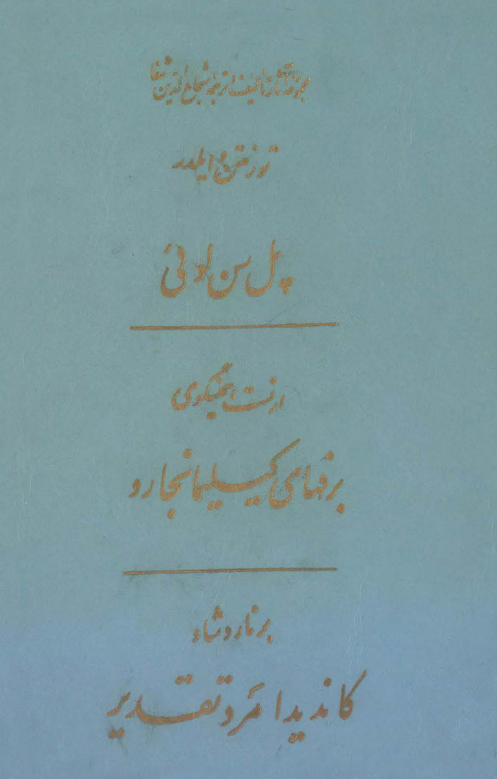 مجموعه آثار تألیف و ترجمه شجاع الدین شفا
تورنتون وایلدر
پل سن لوئی
ارنست همینگوی
برفهای کیلیمانجارو
برناردشاو
کاندیدا مرد تقدیر